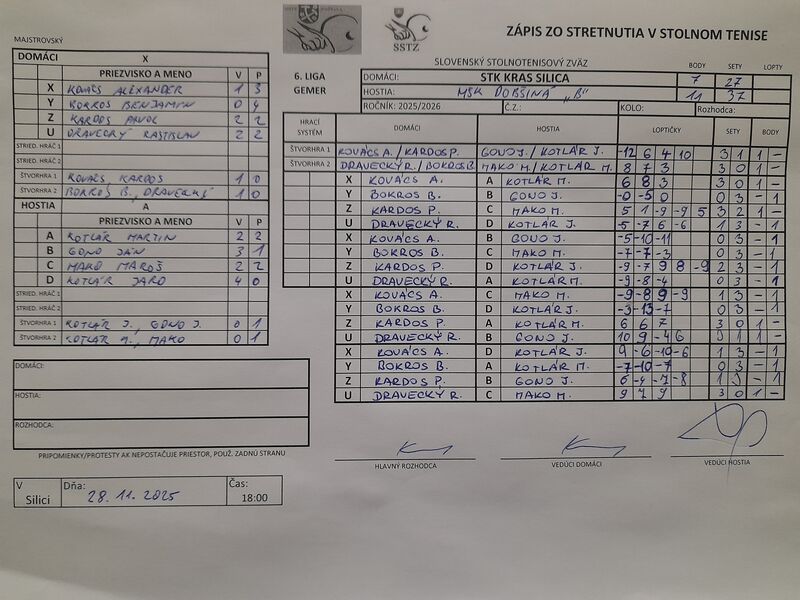 ZÁPIS ZO STRETNUTIA V STOLNOM TENISE
SSTZ
MAJSTROVSKÝ
SLOVENSKÝ STOLNOTENISOVÝ ZVÄZ
BODY SETY LOPTY
6. LIGA
GEMER
DOMÁCI: STK KRAS SILICA 7 27
HOSTIA: MSK DOBŠINÁ "B" 11 37
ROČNÍK: 2025/2026 Č.Z.: KOLO: Rozhodca:
DOMÁCI X
PRIEZVISKO A MENO V P
X KOVÁCS ALEXANDER 1 3
Y BOKROS BENJAMIN 0 4
Z KARDOS PAVOL 2 2
U DRAVECKÝ RASTISLAV 2 2
STRIED. HRÁČ 1
STRIED. HRÁČ 2
ŠTVORHRA 1 KOVÁCS, KARDOS 1 0
ŠTVORHRA 2 BOKROS B., DRAVECKÝ 1 0
HOSTIA A
PRIEZVISKO A MENO V P
A KOTLÁR MARTIN 2 2
B GONO JÁN 3 1
C MAKO MAROŠ 2 2
D KOTLÁR JARO 4 0
STRIED. HRÁČ 1
STRIED. HRÁČ 2
ŠTVORHRA 1 KOTLÁR J., GONO J. 0 1
ŠTVORHRA 2 KOTLÁR M., MAKO 0 1
HRACÍ SYSTÉM DOMÁCI HOSTIA LOPTIČKY SETY BODY
ŠTVORHRA 1 KOVÁCS A./KARDOS P. GONO J./KOTLÁR J. -12 6 4 10 3 1 1 -
ŠTVORHRA 2 DRAVECKÝ R./BOKROS B. MAKO M./KOTLÁR M. 8 7 3 3 0 1 -
X KOVÁCS A. A KOTLÁR M. 6 8 3 3 0 1 -
Y BOKROS B. B GONO J. -0 -5 0 0 3 - 1
Z KARDOS P. C MAKO M. 5 1 -9 -9 5 3 2 1 -
U DRAVECKÝ R. D KOTLÁR J. -5 -7 6 -6 1 3 - 1
X KOVÁCS A. B GONO J. -5 -10 -11 0 3 - 1
Y BOKROS B. C MAKO M. -7 -7 -3 0 3 - 1
Z KARDOS P. D KOTLÁR J. -9 -7 9 8 -9 2 3 - 1
U DRAVECKÝ R. A KOTLÁR M. -9 -8 -4 0 3 - 1
X KOVÁCS A. C MAKO M. -9 -8 9 -9 1 3 - 1
Y BOKROS B. D KOTLÁR J. -3 -13 -7 0 3 - 1
Z KARDOS P. A KOTLÁR M. 6 6 7 3 0 1 -
U DRAVECKÝ R. B GONO J. 10 9 -4 6 3 1 1 -
X KOVÁCS A. D KOTLÁR J. 9 -6 -10 -6 1 3 - 1
Y BOKROS B. A KOTLÁR M. -7 -10 -7 0 3 - 1
Z KARDOS P. B GONO J. 6 -4 -7 -8 1 3 - 1
U DRAVECKÝ R. C MAKO M. 9 7 9 3 0 1 -
DOMÁCI:
HOSTIA:
ROZHODCA:
PRIPOMIENKY/PROTESTY AK NEPOSTAČUJE PRIESTOR, POUŽ. ZADNÚ STRANU
HLAVNÝ ROZHODCA
VEDÚCI DOMÁCI
VEDÚCI HOSTIA
V Silici Dňa: 28.11.2025 Čas: 18:00